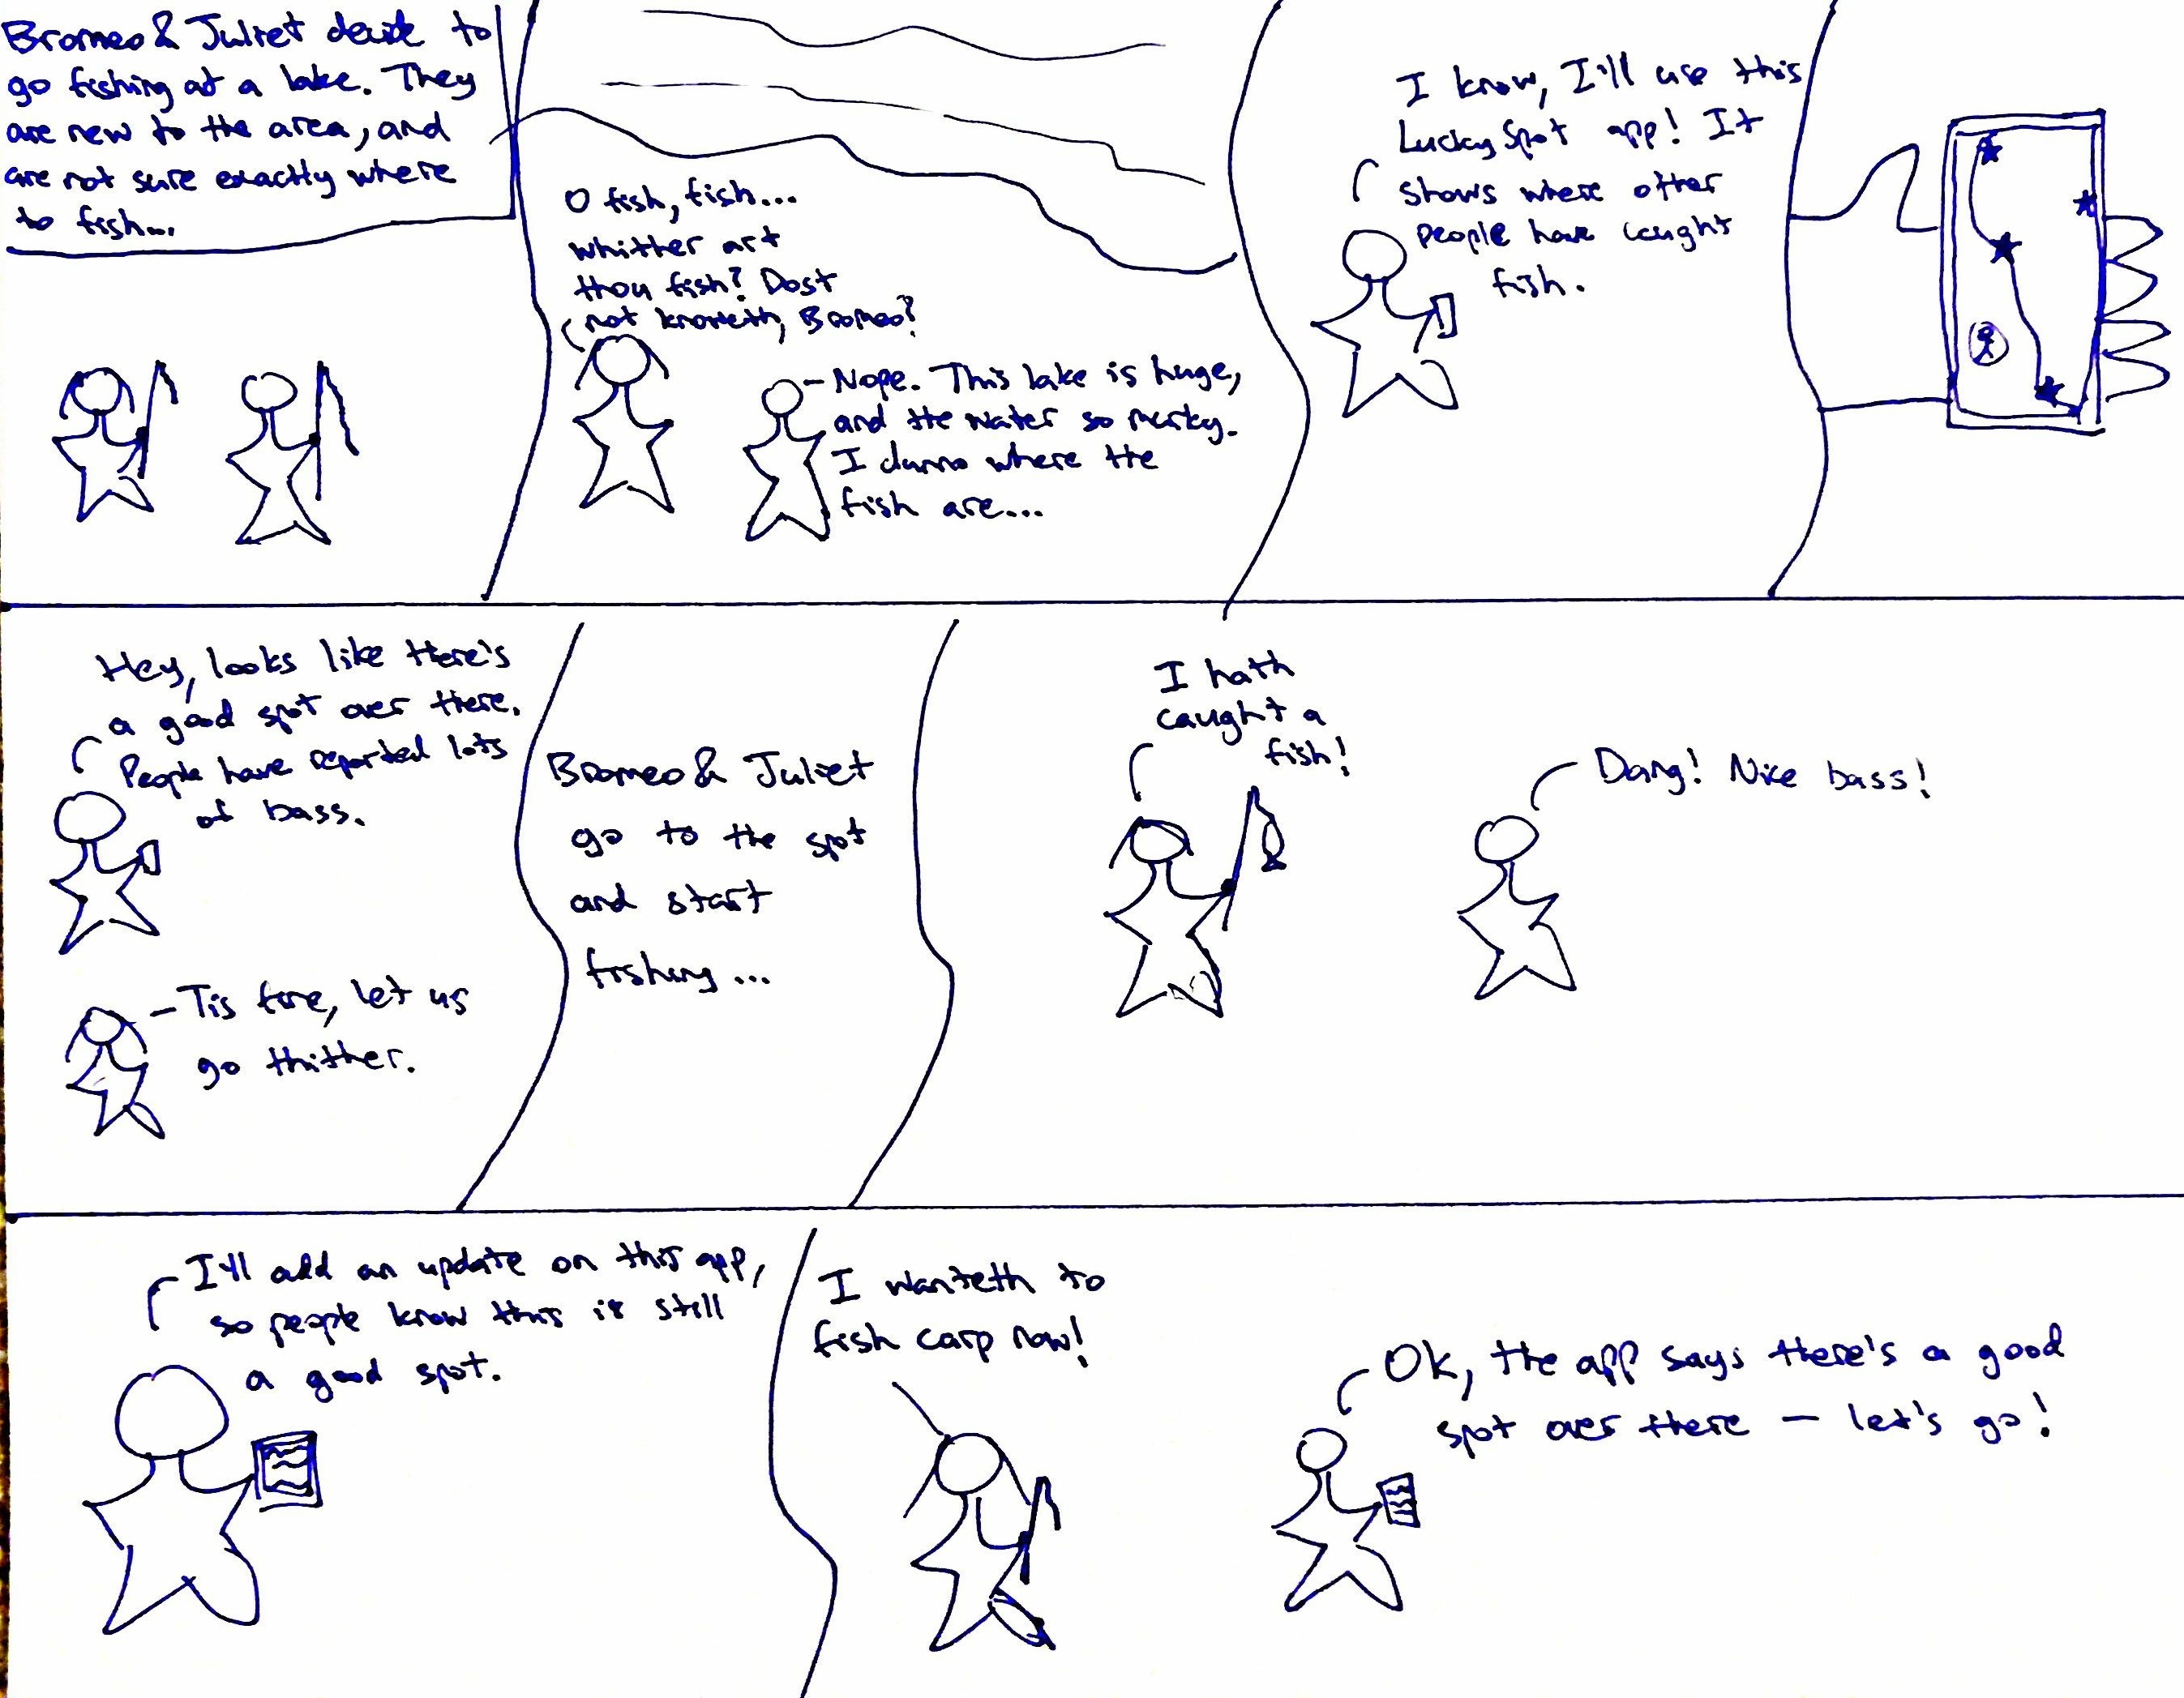 Bromeo & Juliet decide to
go fishing at a lake. They
are new to the area, and
are not sure exactly where
to fish...
O fish, fish...
whither art
thou fish? Dost
not knoweth, Bromeo?
Nope. This lake is huge,
and the water so murky.
I dunno where the
fish are...
I know, I'll use this
LuckySpot app! It
shows where other
people have caught
fish.
Hey, looks like there's
a good spot over there.
People have reported lots
of bass.
Tis fine, let us
go thither.
Bromeo & Juliet
go to the spot
and start
fishing...
I hath
caught a
fish!
Dang! Nice bass!
I'll add an update on this app,
so people know this is still
a good spot.
I wanteth to
fish carp now!
Ok, the app says there's a good
spot over there — let's go!